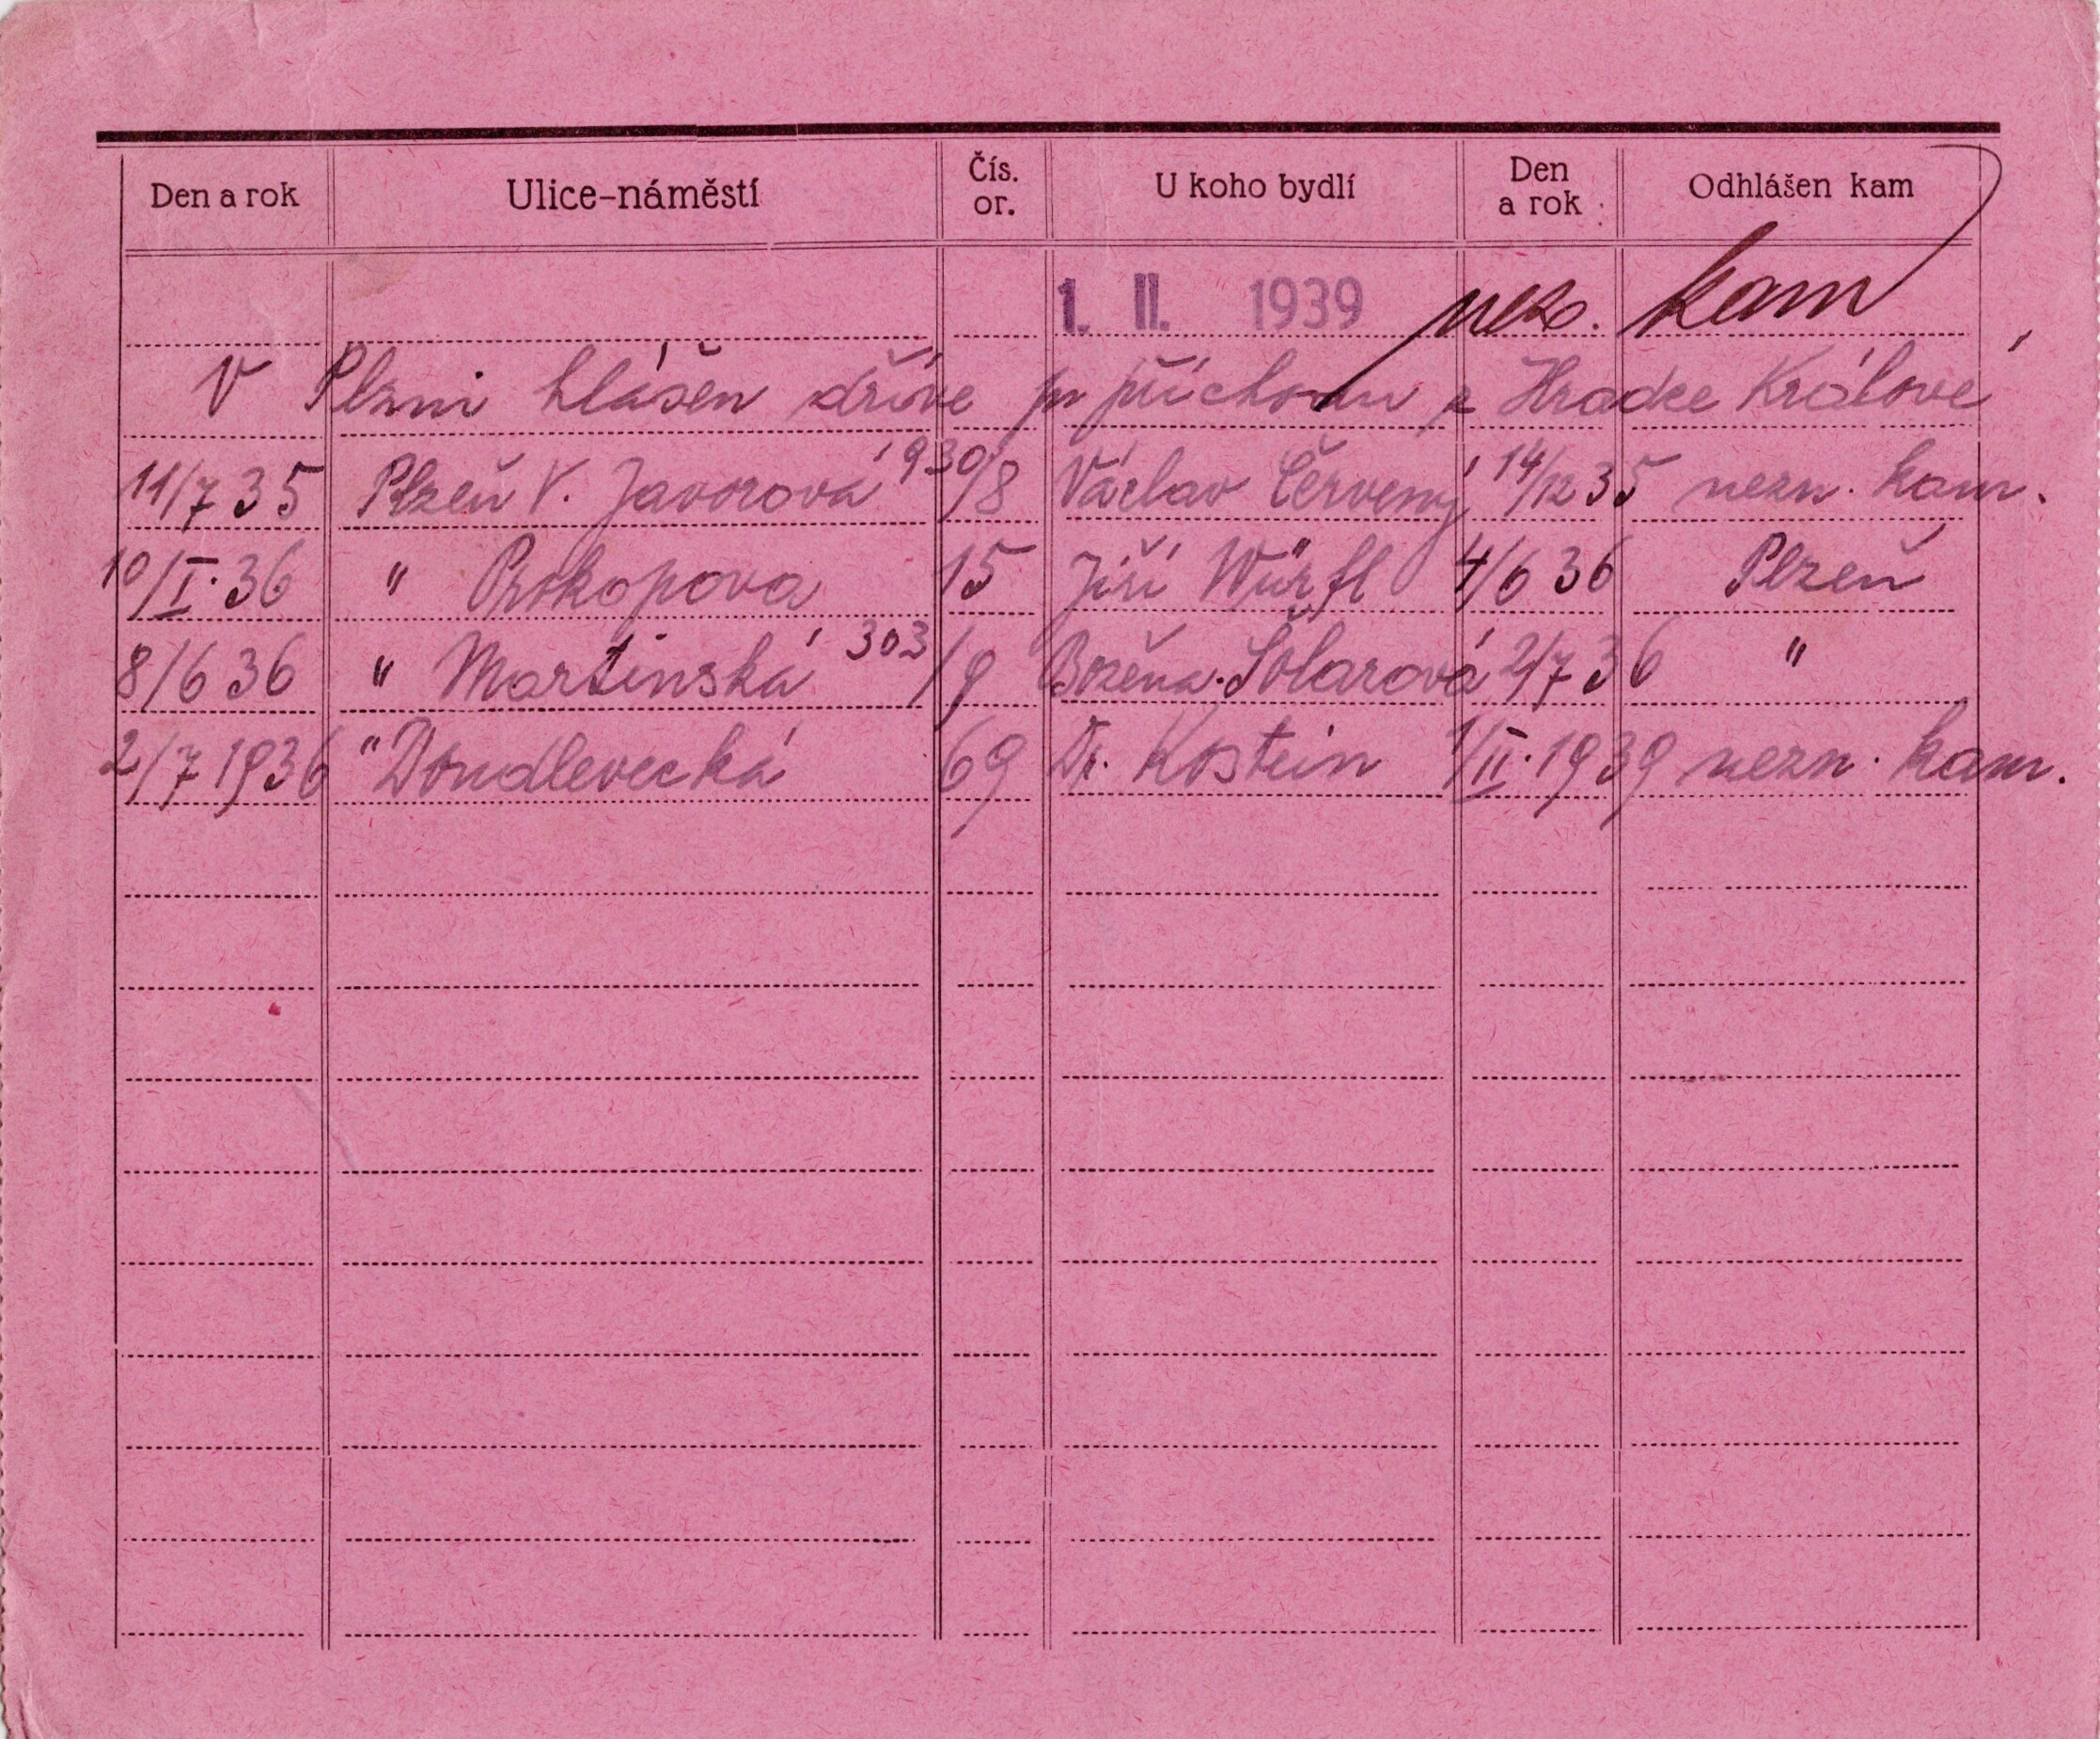 Den a rok Ulice-náměstí Čís. or. U koho bydlí Den a rok Odhlášen kam
1. II. 1939 nezn. kam
V Plzni hlášen dříve po příchodu z Hradce Králové
11/7 35 Plzeň V. Javorová 930/8 Václav Červený 14/12 35 nezn. kam.
10/I. 36 " Prokopova 15 Jiří Würfl 4/6 36 Plzeň
8/6 36 " Martinská 303/9 Božena Šolarová 2/7 36 "
2/7 1936 " Doudlevecká 69 Dr. Kostein 1/II. 1939 nezn. kam.